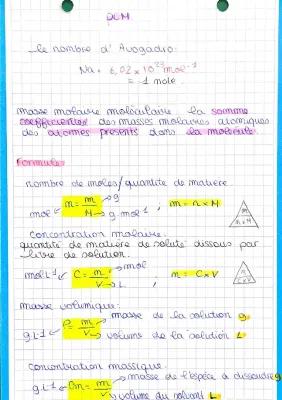 DCM
le nombre d'Avogadro:
Na = 6,02 × 10²³ mol⁻¹
= 1 mole
masse molaire moléculaire: la somme
coefficientée des masses molaires atomiques
des atomes présents dans la molécule
Formule
nombre de moles/quantité de matière
mol n = m/M g g.mol⁻¹, m = n × M
m
n × M
concentration molaire:
quantité de matière de soluté dissous par
litre de solution.
mol.L⁻¹ C = n/V mol L, n = C × V
n
C × V
masse volumique:
g.L⁻¹ ρ = m/V masse de la solution g
volume de la solution L
concentration massique:
g.L⁻¹ Cm = m/V masse de l'espèce à dissoudre g
volume du solvant L